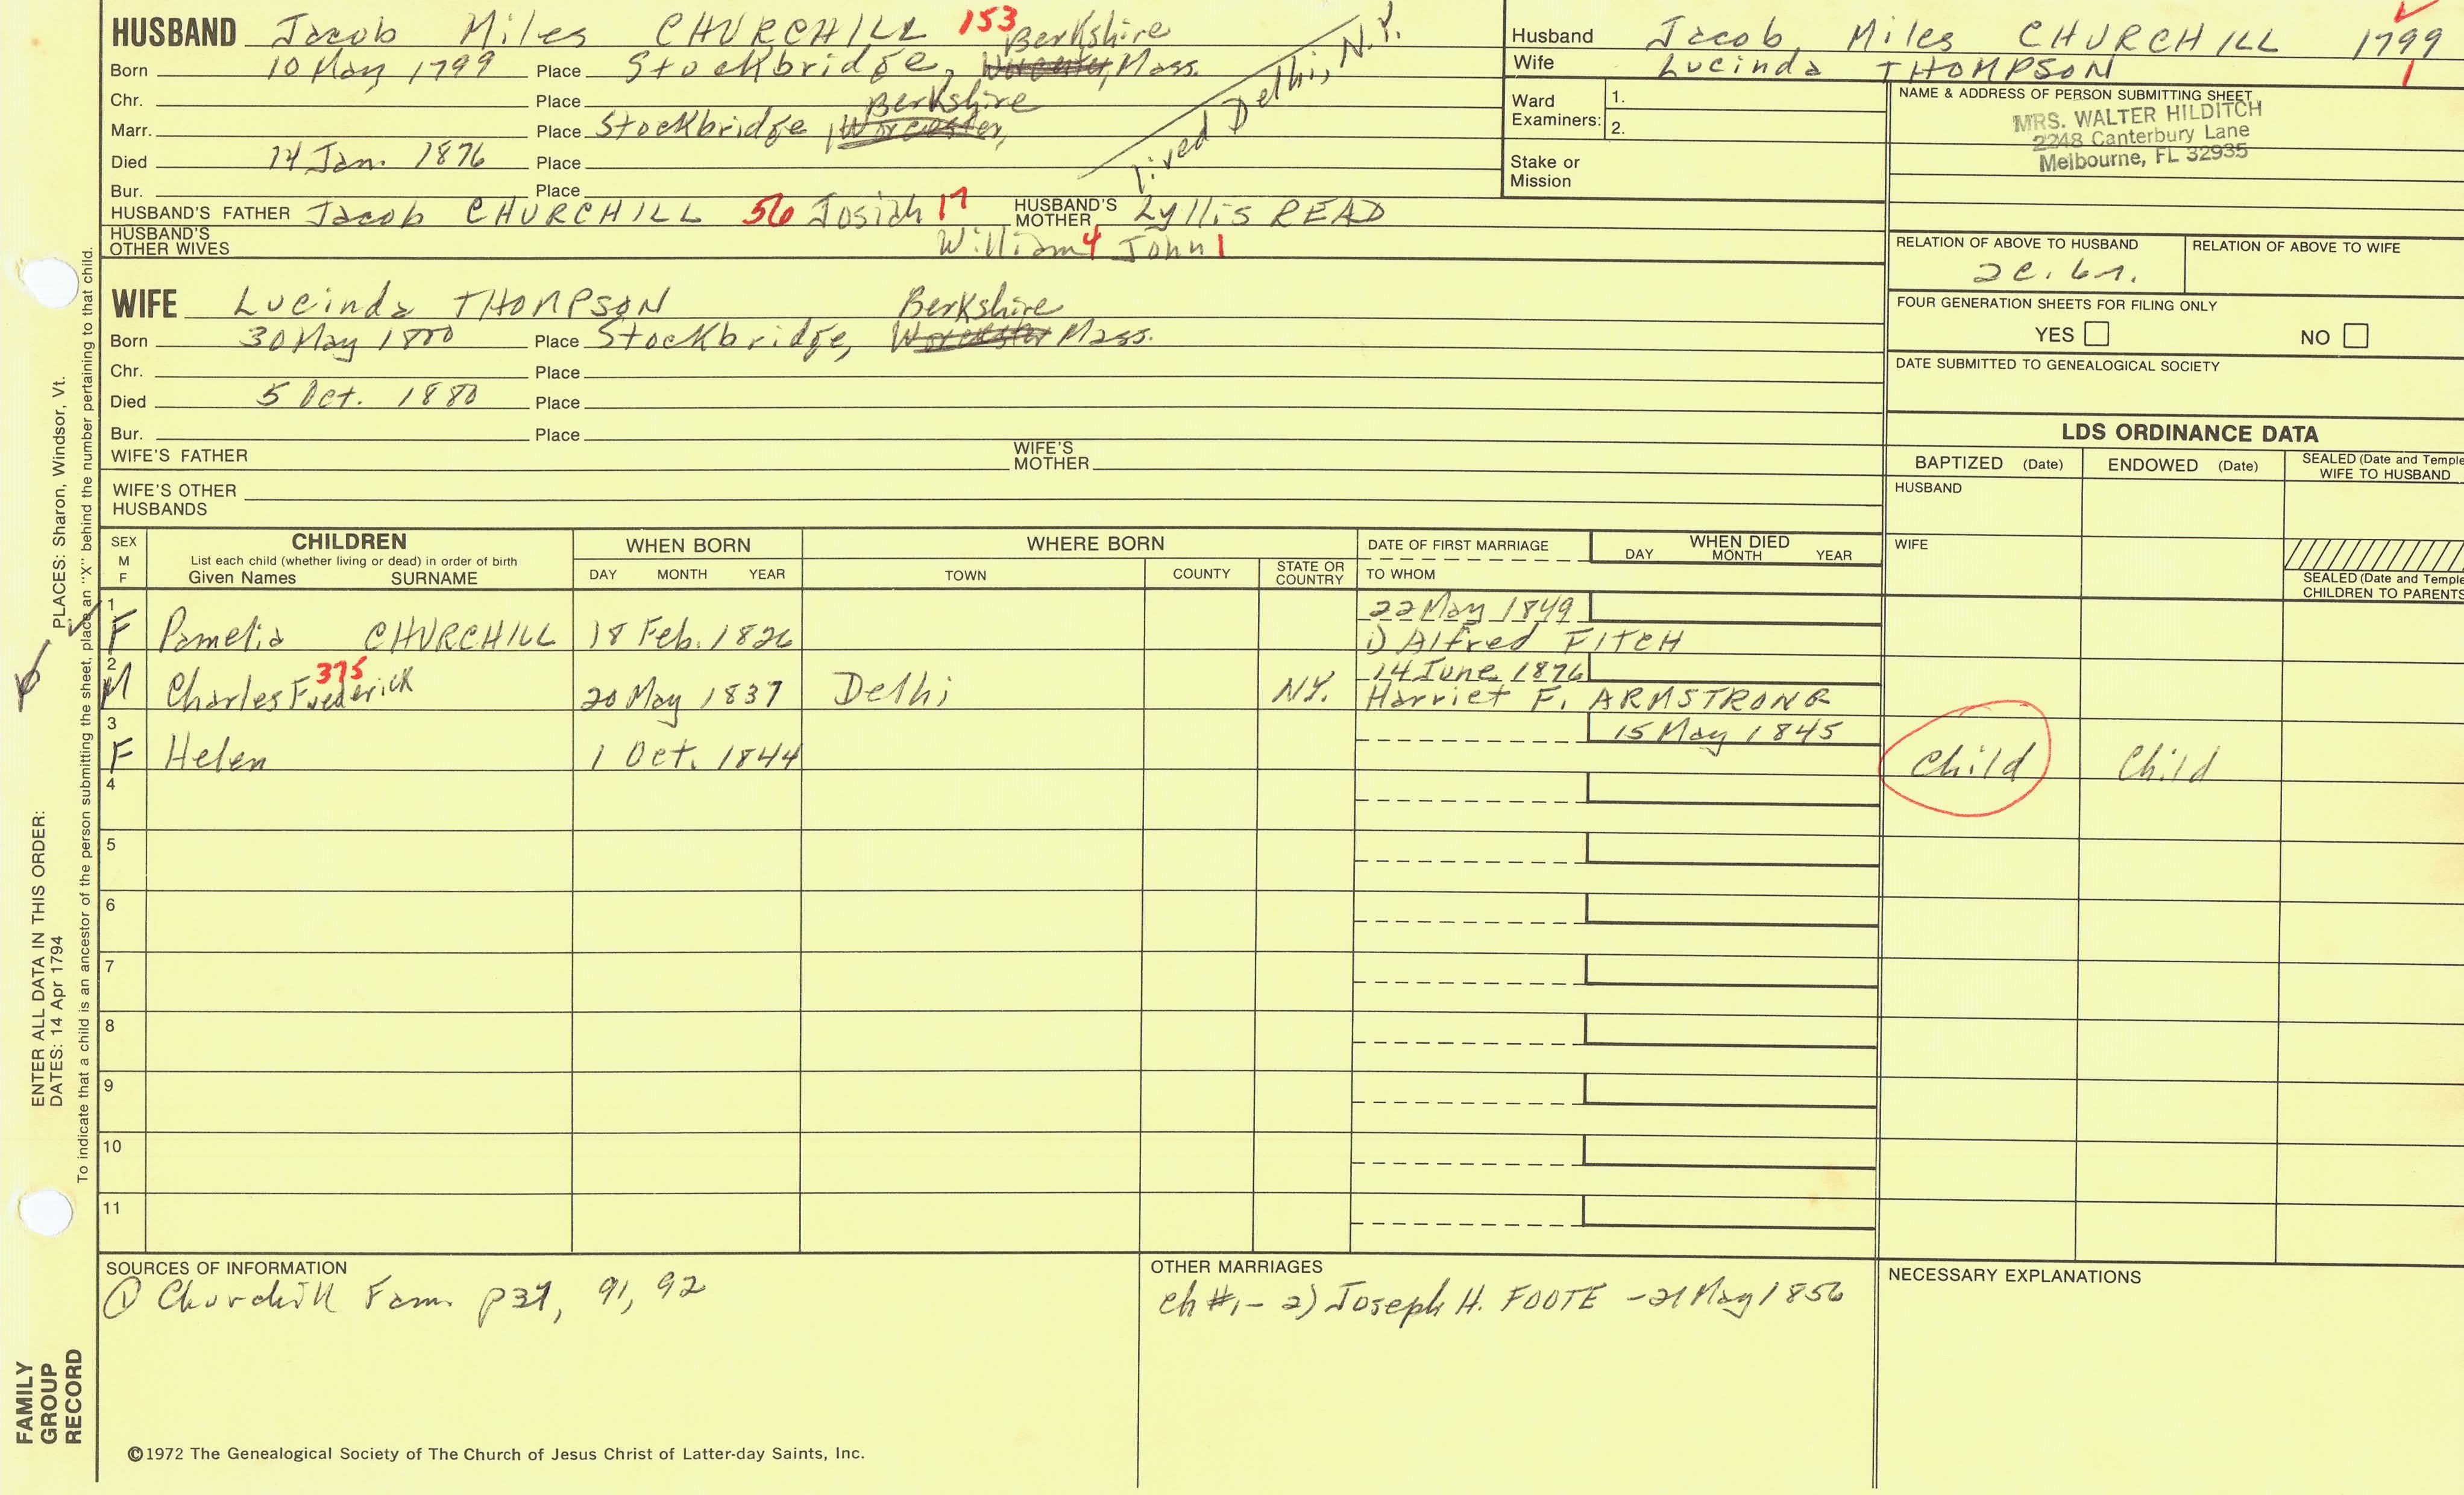 HUSBAND Jacob Miles CHURCHILL 153
Berkshire
Born 10 May 1799 Place Stockbridge, Worcester, Mass.
Chr. Place
Berkshire
Marr. Place Stockbridge, Worcester,
Died 14 Jan. 1876 Place
Bur. Place
lived Delhi, N.Y.
HUSBAND'S FATHER Jacob CHURCHILL 56 Josiah 17 HUSBAND'S MOTHER Lyllis READ
HUSBAND'S OTHER WIVES William 4 John 1
WIFE Lucinda THOMPSON
Berkshire
Born 30 May 1800 Place Stockbridge, Worcester Mass.
Chr. Place
Died 5 Oct. 1880 Place
Bur. Place
WIFE'S FATHER WIFE'S MOTHER
WIFE'S OTHER HUSBANDS
Husband Jacob Miles CHURCHILL 1799
Wife Lucinda THOMPSON 1
Ward Examiners: 1. 2.
Stake or Mission
NAME & ADDRESS OF PERSON SUBMITTING SHEET
MRS. WALTER HILDITCH
2248 Canterbury Lane
Melbourne, FL 32935
RELATION OF ABOVE TO HUSBAND RELATION OF ABOVE TO WIFE
FOUR GENERATION SHEETS FOR FILING ONLY
YES NO
DATE SUBMITTED TO GENEALOGICAL SOCIETY
LDS ORDINANCE DATA
BAPTIZED (Date) ENDOWED (Date) SEALED (Date and Temple
WIFE TO HUSBAND
HUSBAND
WIFE
SEALED (Date and Temple
CHILDREN TO PARENTS
SEX M F CHILDREN WHEN BORN WHERE BORN DATE OF FIRST MARRIAGE WHEN DIED
List each child (whether living or dead) in order of birth
Given Names SURNAME DAY MONTH YEAR TOWN COUNTY STATE OR COUNTRY TO WHOM DAY MONTH YEAR
1 22 May 1849
F Pamelia CHURCHILL 18 Feb. 1826 1) Alfred FITCH
2 375 14 June 1876
M Charles Frederick 20 May 1837 Delhi N.Y. Harriet F. ARMSTRONG
3 15 May 1845
F Helen 1 Oct. 1844 Child Child
4
5
6
7
8
9
10
11
SOURCES OF INFORMATION
① Churchill Fam. p37, 91, 92
OTHER MARRIAGES
ch #1- 2) Joseph H. FOOTE - 21 May 1856
NECESSARY EXPLANATIONS
©1972 The Genealogical Society of The Church of Jesus Christ of Latter-day Saints, Inc.
FAMILY
GROUP
RECORD
ENTER ALL DATA IN THIS ORDER:
DATES: 14 Apr 1794 PLACES: Sharon, Windsor, Vt.
To indicate that a child is an ancestor of the person submitting the sheet, place an "X" behind the number pertaining to that child.